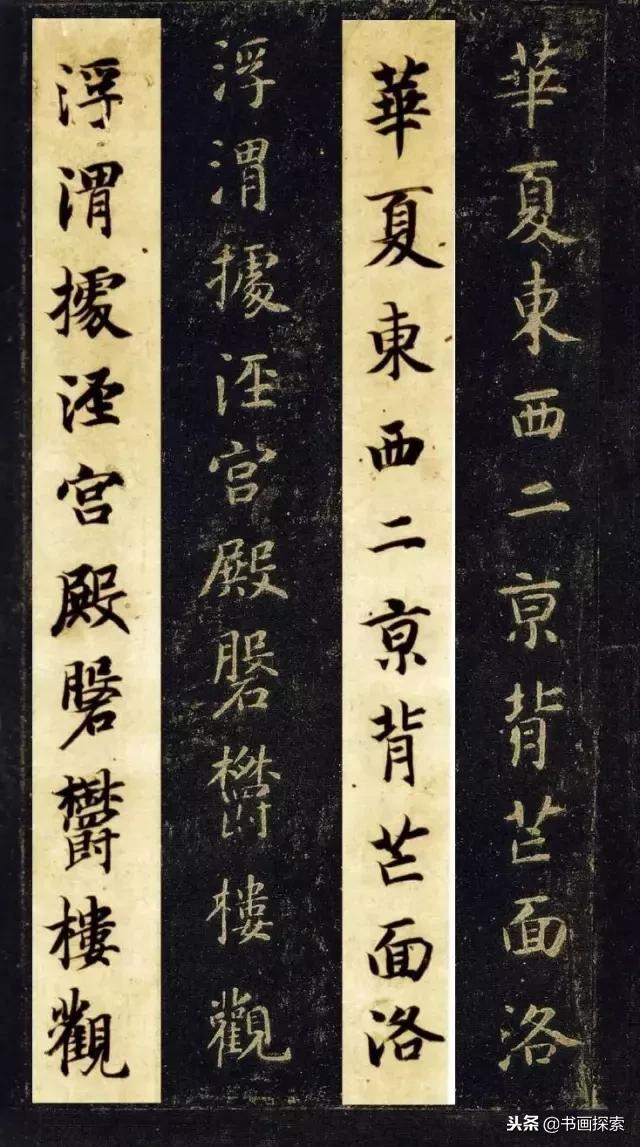 華夏東西二京背芒面洛
華夏東西二京背芒面洛
浮渭據涇宮殿磐鬱樓觀
浮渭據涇宮殿磐鬱樓觀
头条 @书画探索